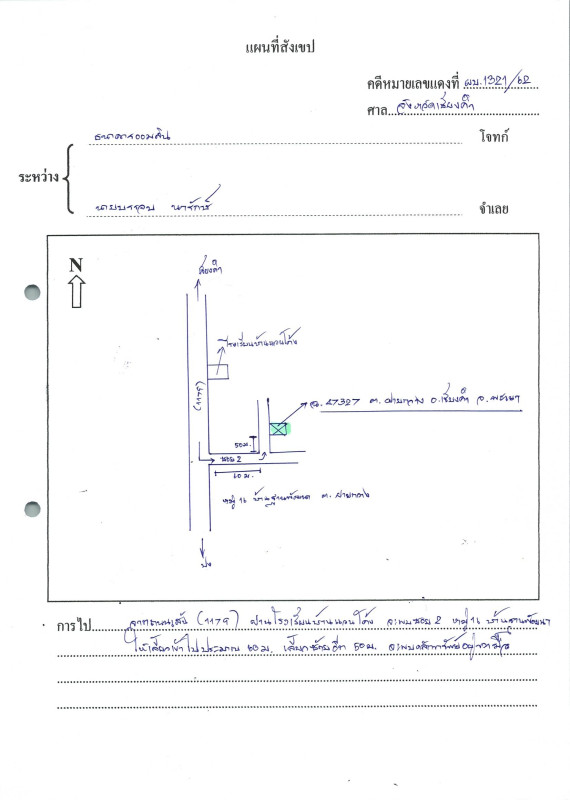 แผนที่สังเขป
คดีหมายเลขแดงที่ ผบ.1321/62
ศาล จังหวัดเชียงคำ
ธนาคารออมสิน โจทก์
ระหว่าง
นายประกอบ นารักษ์ จำเลย
N
เชียงคำ
โรงเรียนบ้านแวนโค้ง
(1179)
ฉ. 27327 ต. ฝายกวาง อ.เชียงคำ จ.พะเยา
50ม.
ซอย 2
60ม.
หมู่ 16 ต. ฝายกวาง
ปง
การไป จากถนนเส้น (1179) ผ่านโรงเรียนบ้านแวนโค้ง จะพบซอย 2 หมู่ 16
ให้เลี้ยวเข้าไปประมาณ 60 ม. เลี้ยวซ้ายอีก 50 ม. จะพบหลักทรัพย์อยู่ขวามือ